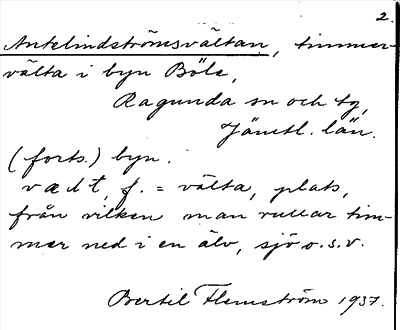 2.
Antelindströmsvältan, timmer-
välta i byn Böle,
Ragunda sn och tg,
Jämtl. län.
(forts.) byn.
vælt, f. = välta, plats,
från vilken man rullar tim-
mer ned i en älv, sjö o.s.v.
Bertil Flemström 1937.